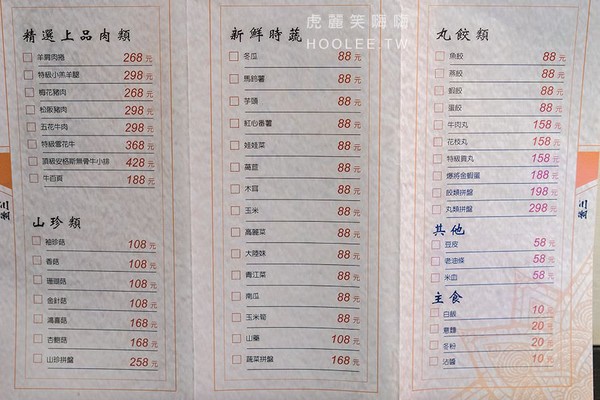 虎麗笑嗨嗨
HOOLEE.TW
精選上品肉類
羊肩肉捲 268元
特級小羔羊腿 298元
梅花豬肉 268元
松阪豬肉 298元
五花牛肉 298元
特級雪花牛 368元
頂級安格斯無骨牛小排 428元
牛百頁 188元
山珍類
袖珍菇 108元
香菇 108元
珊瑚菇 108元
金針菇 108元
鴻喜菇 168元
杏鮑菇 168元
山珍拼盤 258元
新鮮時蔬
冬瓜 88元
馬鈴薯 88元
芋頭 88元
紅心番薯 88元
娃娃菜 88元
茼蒿 88元
木耳 88元
玉米 88元
高麗菜 88元
大陸妹 88元
青江菜 88元
南瓜 88元
玉米筍 88元
山藥 108元
蔬菜拼盤 168元
丸餃類
魚餃 88元
燕餃 88元
蝦餃 88元
蛋餃 88元
牛肉丸 158元
花枝丸 158元
特級貢丸 158元
爆將金蝦蛋 188元
餃類拼盤 198元
丸類拼盤 298元
其他
豆皮 58元
老油條 58元
米血 58元
主食
白飯 10元
意麵 20元
冬粉 20元
沾醬 10元